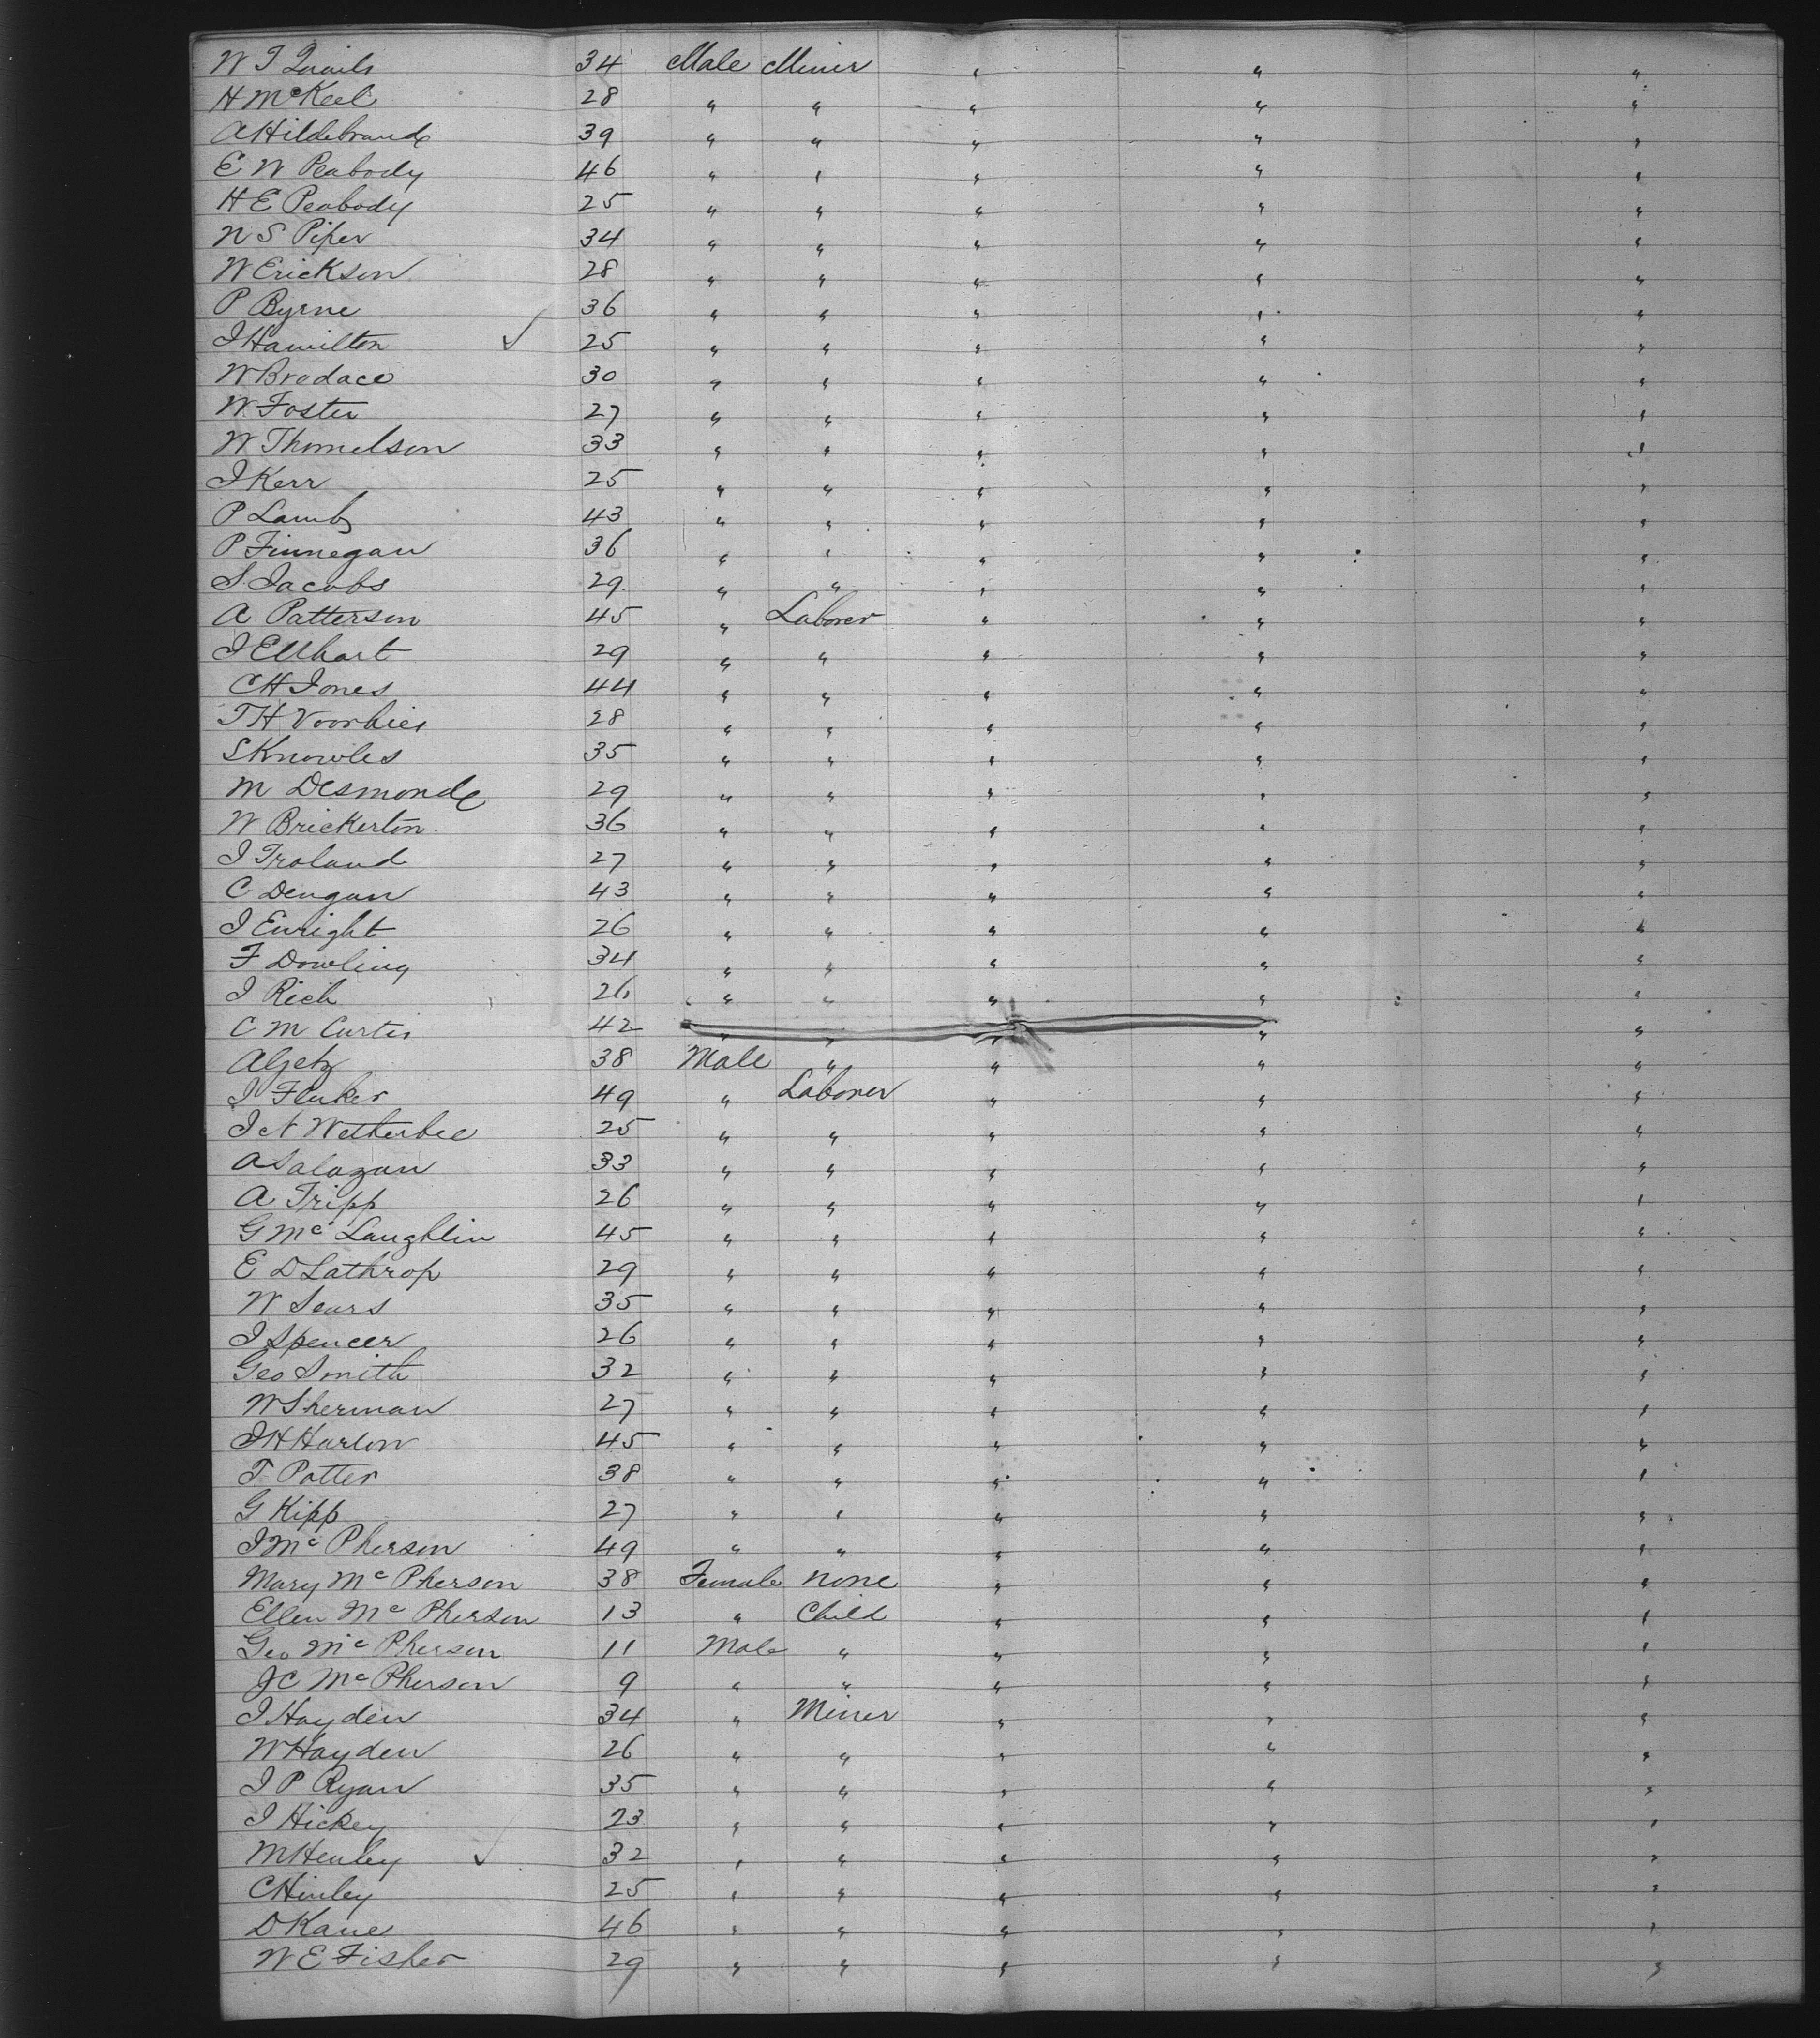 W T Quails 34 Male Miner " " "
H McKeel 28 " " " " "
A Hildebrand 39 " " " " "
E W Peabody 46 " " " " "
H E Peabody 25 " " " " "
N S Piper 34 " " " " "
W Erickson 28 " " " " "
P Byrne 36 " " " " "
J Hamilton ✓ 25 " " " " "
W Brodace 30 " " " " "
W Foster 27 " " " " "
W Thomelson 33 " " " " "
J Kerr 25 " " " " "
P Lamb 43 " " " " "
P Finnegan 36 " " " " "
S Jacobs 29 " " " " "
A Patterson 45 " Laborer " " "
J Ellhart 29 " " " " "
C H Jones 44 " " " " "
T H Voorhies 28 " " " " "
S Knowles 35 " " " " "
M Desmond 29 " " " " "
W Brickerton 36 " " " " "
J Troland 27 " " " " "
C Deugan 43 " " " " "
J Enright 26 " " " " "
F Dowling 34 " " " " "
J Rich 26 " " " " "
C M Curtis 42 " " " " "
A Getz 38 Male " " " "
J Fluker 49 " Laborer " " "
J N Wetherbee 25 " " " " "
A Salazan 33 " " " " "
A Tripp 26 " " " " "
G Mc Laughlin 45 " " " " "
E D Lathrop 29 " " " " "
W Sears 35 " " " " "
J Spencer 26 " " " " "
Geo Smith 32 " " " " "
W Sherman 27 " " " " "
J H Harlon 45 " " " " "
T Potter 38 " " " " "
G Kipp 27 " " " " "
J Mc Pherson 49 " " " " "
Mary Mc Pherson 38 Female none " " "
Ellen Mc Pherson 13 " Child " " "
Geo Mc Pherson 11 Male " " " "
J C Mc Pherson 9 " " " " "
J Hayden 34 " Miner " " "
W Hayden 26 " " " " "
J P Ryan 35 " " " " "
J Hickey 23 " " " " "
M Henley ✓ 32 " " " " "
C Hinley 25 " " " " "
D Kane 46 " " " " "
W E Fisher 29 " " " " "